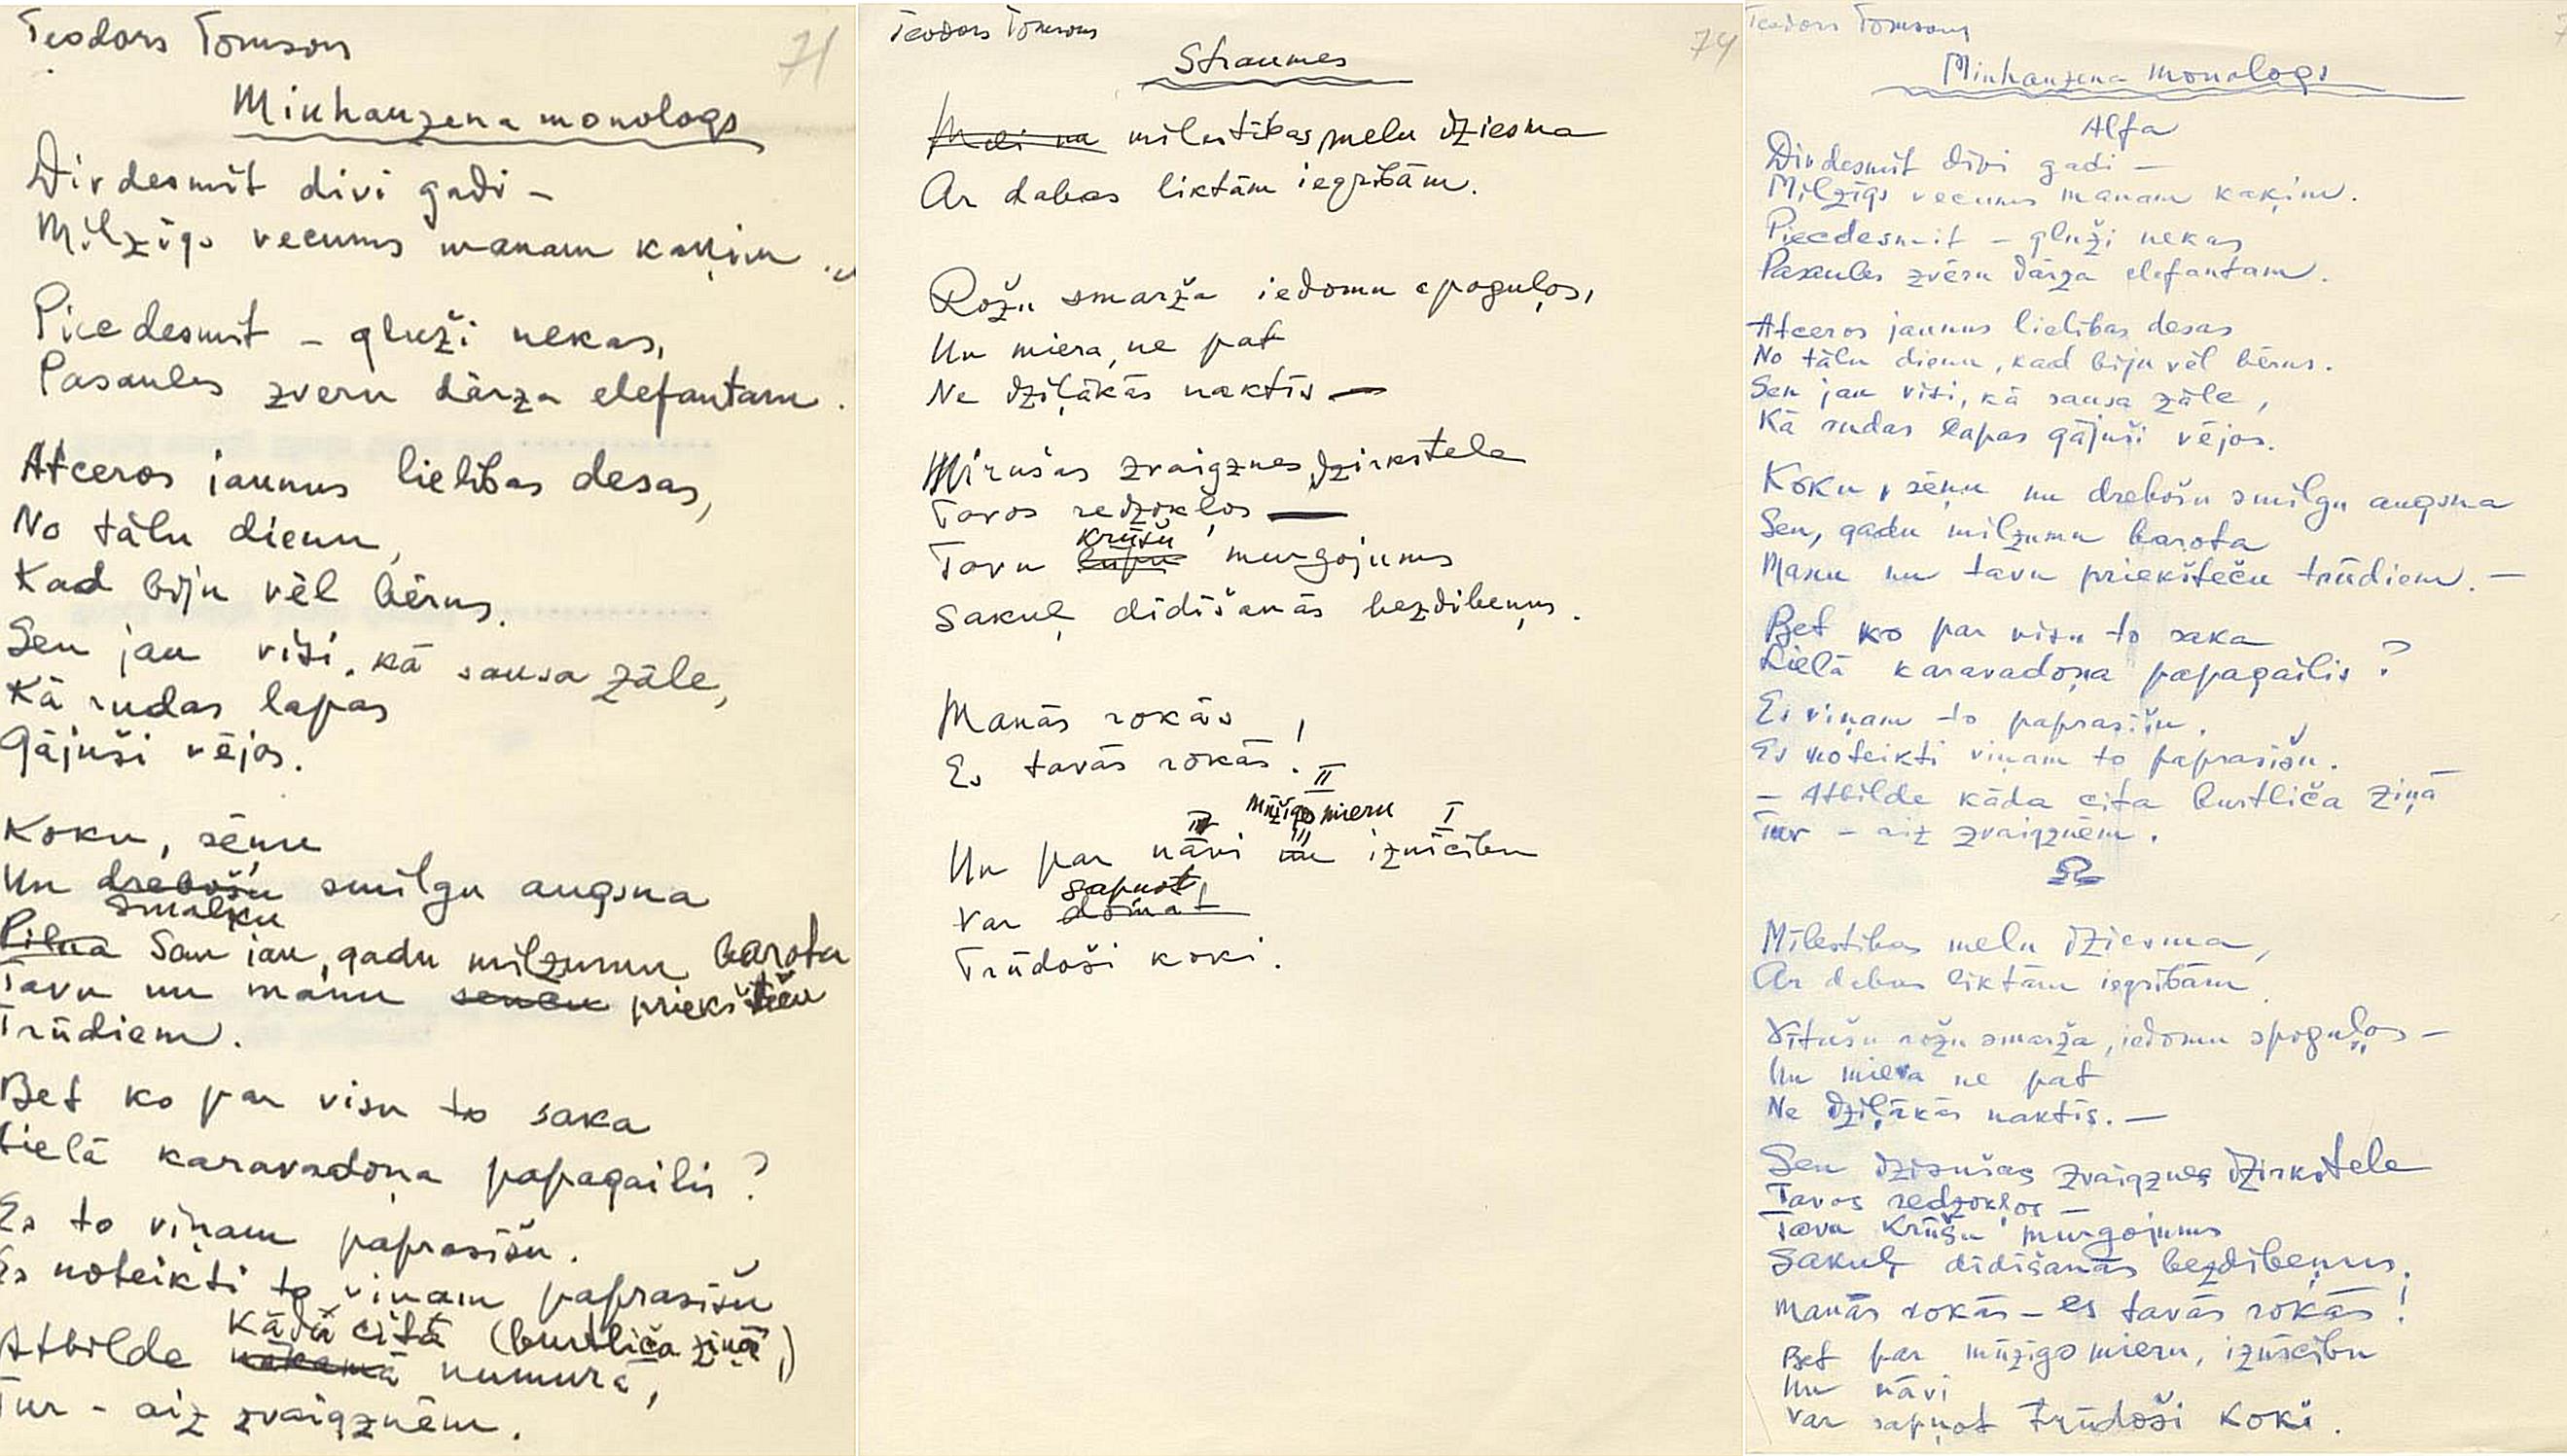 Teodors Tomsons
71
Minhauzena monologs
Divdesmit divi gadi –
Milzīgs vecums manam kaķim.
Piecdesmit – gluži nekas,
Pasaules zvēru dārza elefantam.
Atceros jaunus lielības desas,
No tālu dienu,
Kad biju vēl bērns.
Sen jau visi, kā sausa zāle,
Kā rudas lapas
Gājuši vējos.
Koku, sēņu
Un drebošu smilgu augsna
smalku
Pilna Sen jau, gadu milzumu barota
Tavu un manu senču priekšteču
Trūdiem.
Bet ko par visu to saka
Lielā karavadoņa papagailis?
Es to viņam paprasīšu.
Es noteikti to viņam paprasīšu
Kādā citā (burtliča ziņā)
Atbilde nākamā numurā,
Tur – aiz zvaigznēm.
Teodors Tomsons
74
Straumes
mīlestības melu dziesma
Ar dabas liktām iegribām.
Rožu smarža iedomu spoguļos,
Un miera, ne pat
Ne dziļākās naktīs —
Mirušas zvaigznes dzirkstele
Tavos redzokļos —
krūšu
Tavu lūpu murgojums
Sakuļ dīdīšanās bezdibeņus.
Manās rokās
Es tavās rokās!
II
mūžīgo mieru I
III
Un par nāvi un iznīcību
sapņot
Var domāt
Trūdoši koki.
Teodors Tomsons
7
Minhauzena monologs
Alfa
Divdesmit divi gadi –
Milzīgs vecums manam kaķim.
Piecdesmit – gluži nekas
Pasaules zvēru dārza elefantam.
Atceros jaunus lielības desas
No tālu dienu, kad biju vēl bērns.
Sen jau visi, kā sausa zāle,
Kā rudas lapas gājuši vējos.
Koku, sēņu un drebošu smilgu augsna
Sen, gadu milzumu barota
Manu un tavu priekšteču trūdiem. –
Bet ko par visu to saka
Lielā karavadoņa papagailis?
Es viņam to paprasīšu.
Es noteikti viņam to paprasīšu.
– Atbilde kāda cita burtliča ziņā
Tur – aiz zvaigznēm.
Ω
Mīlestības melu dziesma,
Ar dabas liktām iegribām
Vītušu rožu smarža, iedomu spoguļos –
Un miera ne pat
Ne dziļākās naktīs. –
Sen dzisušas zvaigznes dzirkstele
Tavos redzokļos –
Tavu krūšu murgojums
Sakuļ dīdīšanās bezdibeņus.
Manās rokās – es tavās rokās!
Bet par mūžīgo mieru, iznīcību
Un nāvi
Var sapņot trūdoši koki.